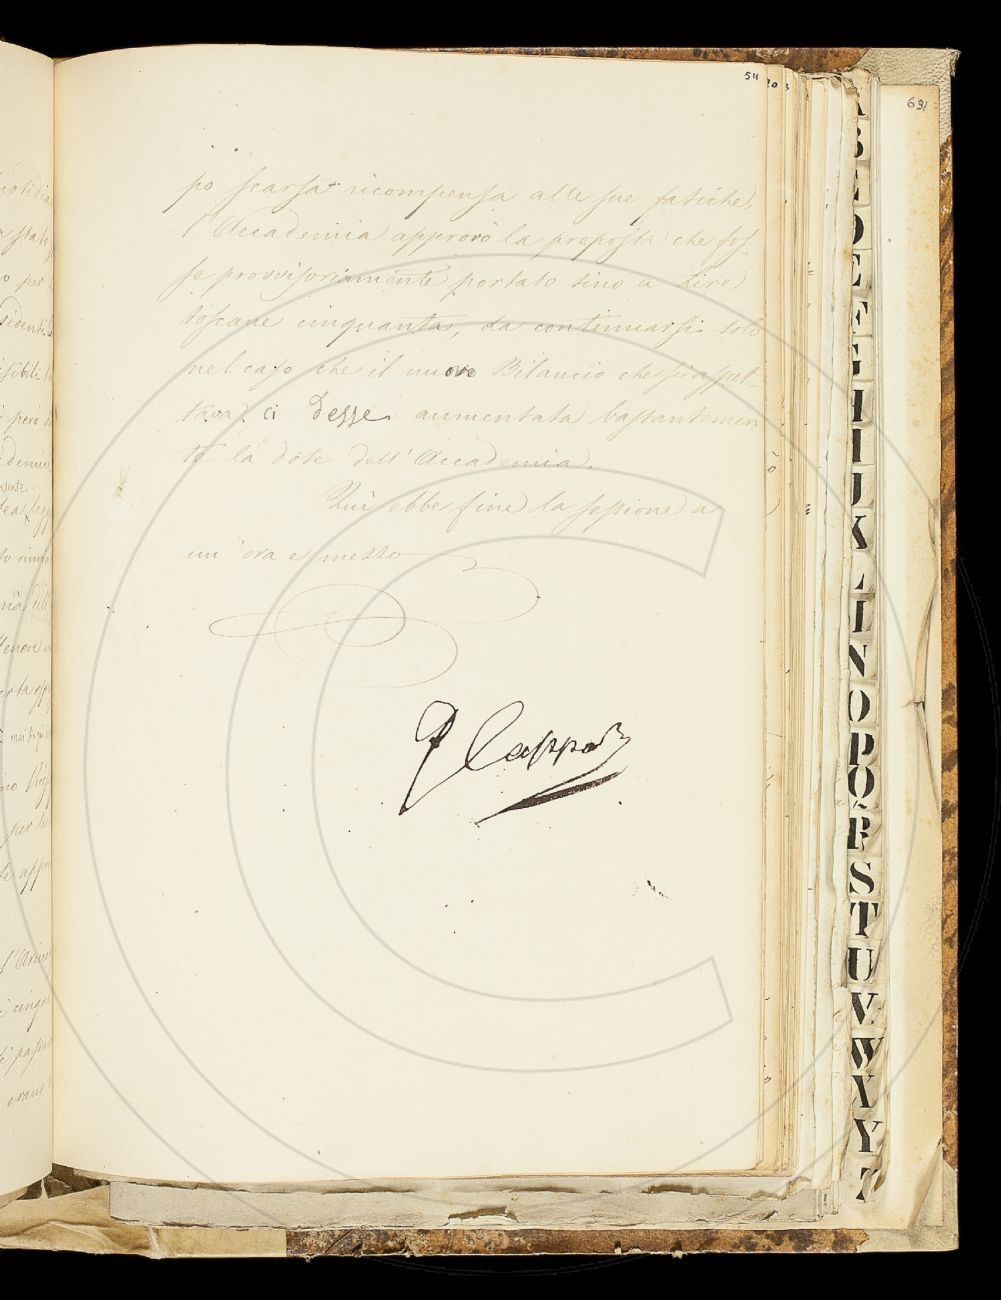 54
631
po scarsa ricompensa alle sue fatiche
l'Accademia approvò la proposta che fos-
se provvisoriamente portato sino a Lire
toscane cinquanta, da continuarsi solo
nel caso che il nuovo Bilancio che si aspet-
tava, ci desse aumentata bastantemen
te la dote dell'Accademia.
Qui ebbe fine la sessione a
un'ora e mezzo
G Capponi
A
B
C
D
E
F
G
H
I
J
K
L
N
O
P
Q
R
S
T
U
V
W
X
Y
Z